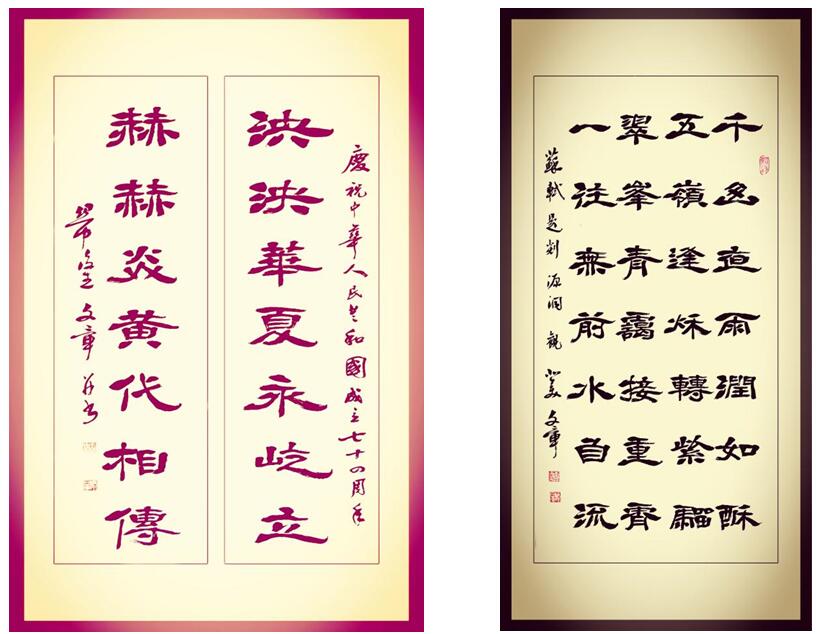 慶祝中華人民共和國成立七十四周年
泱泱華夏永屹立
赫赫炎黄代相傳
文章并书
千直雨潤如酥
五嶺逢秋轉紫
翠峯青靄接重
一往無前水自流
蘇軾 源洞 觀 文章